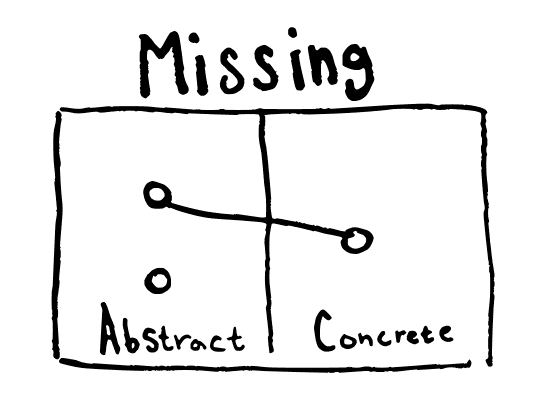 Missing
Abstract Concrete